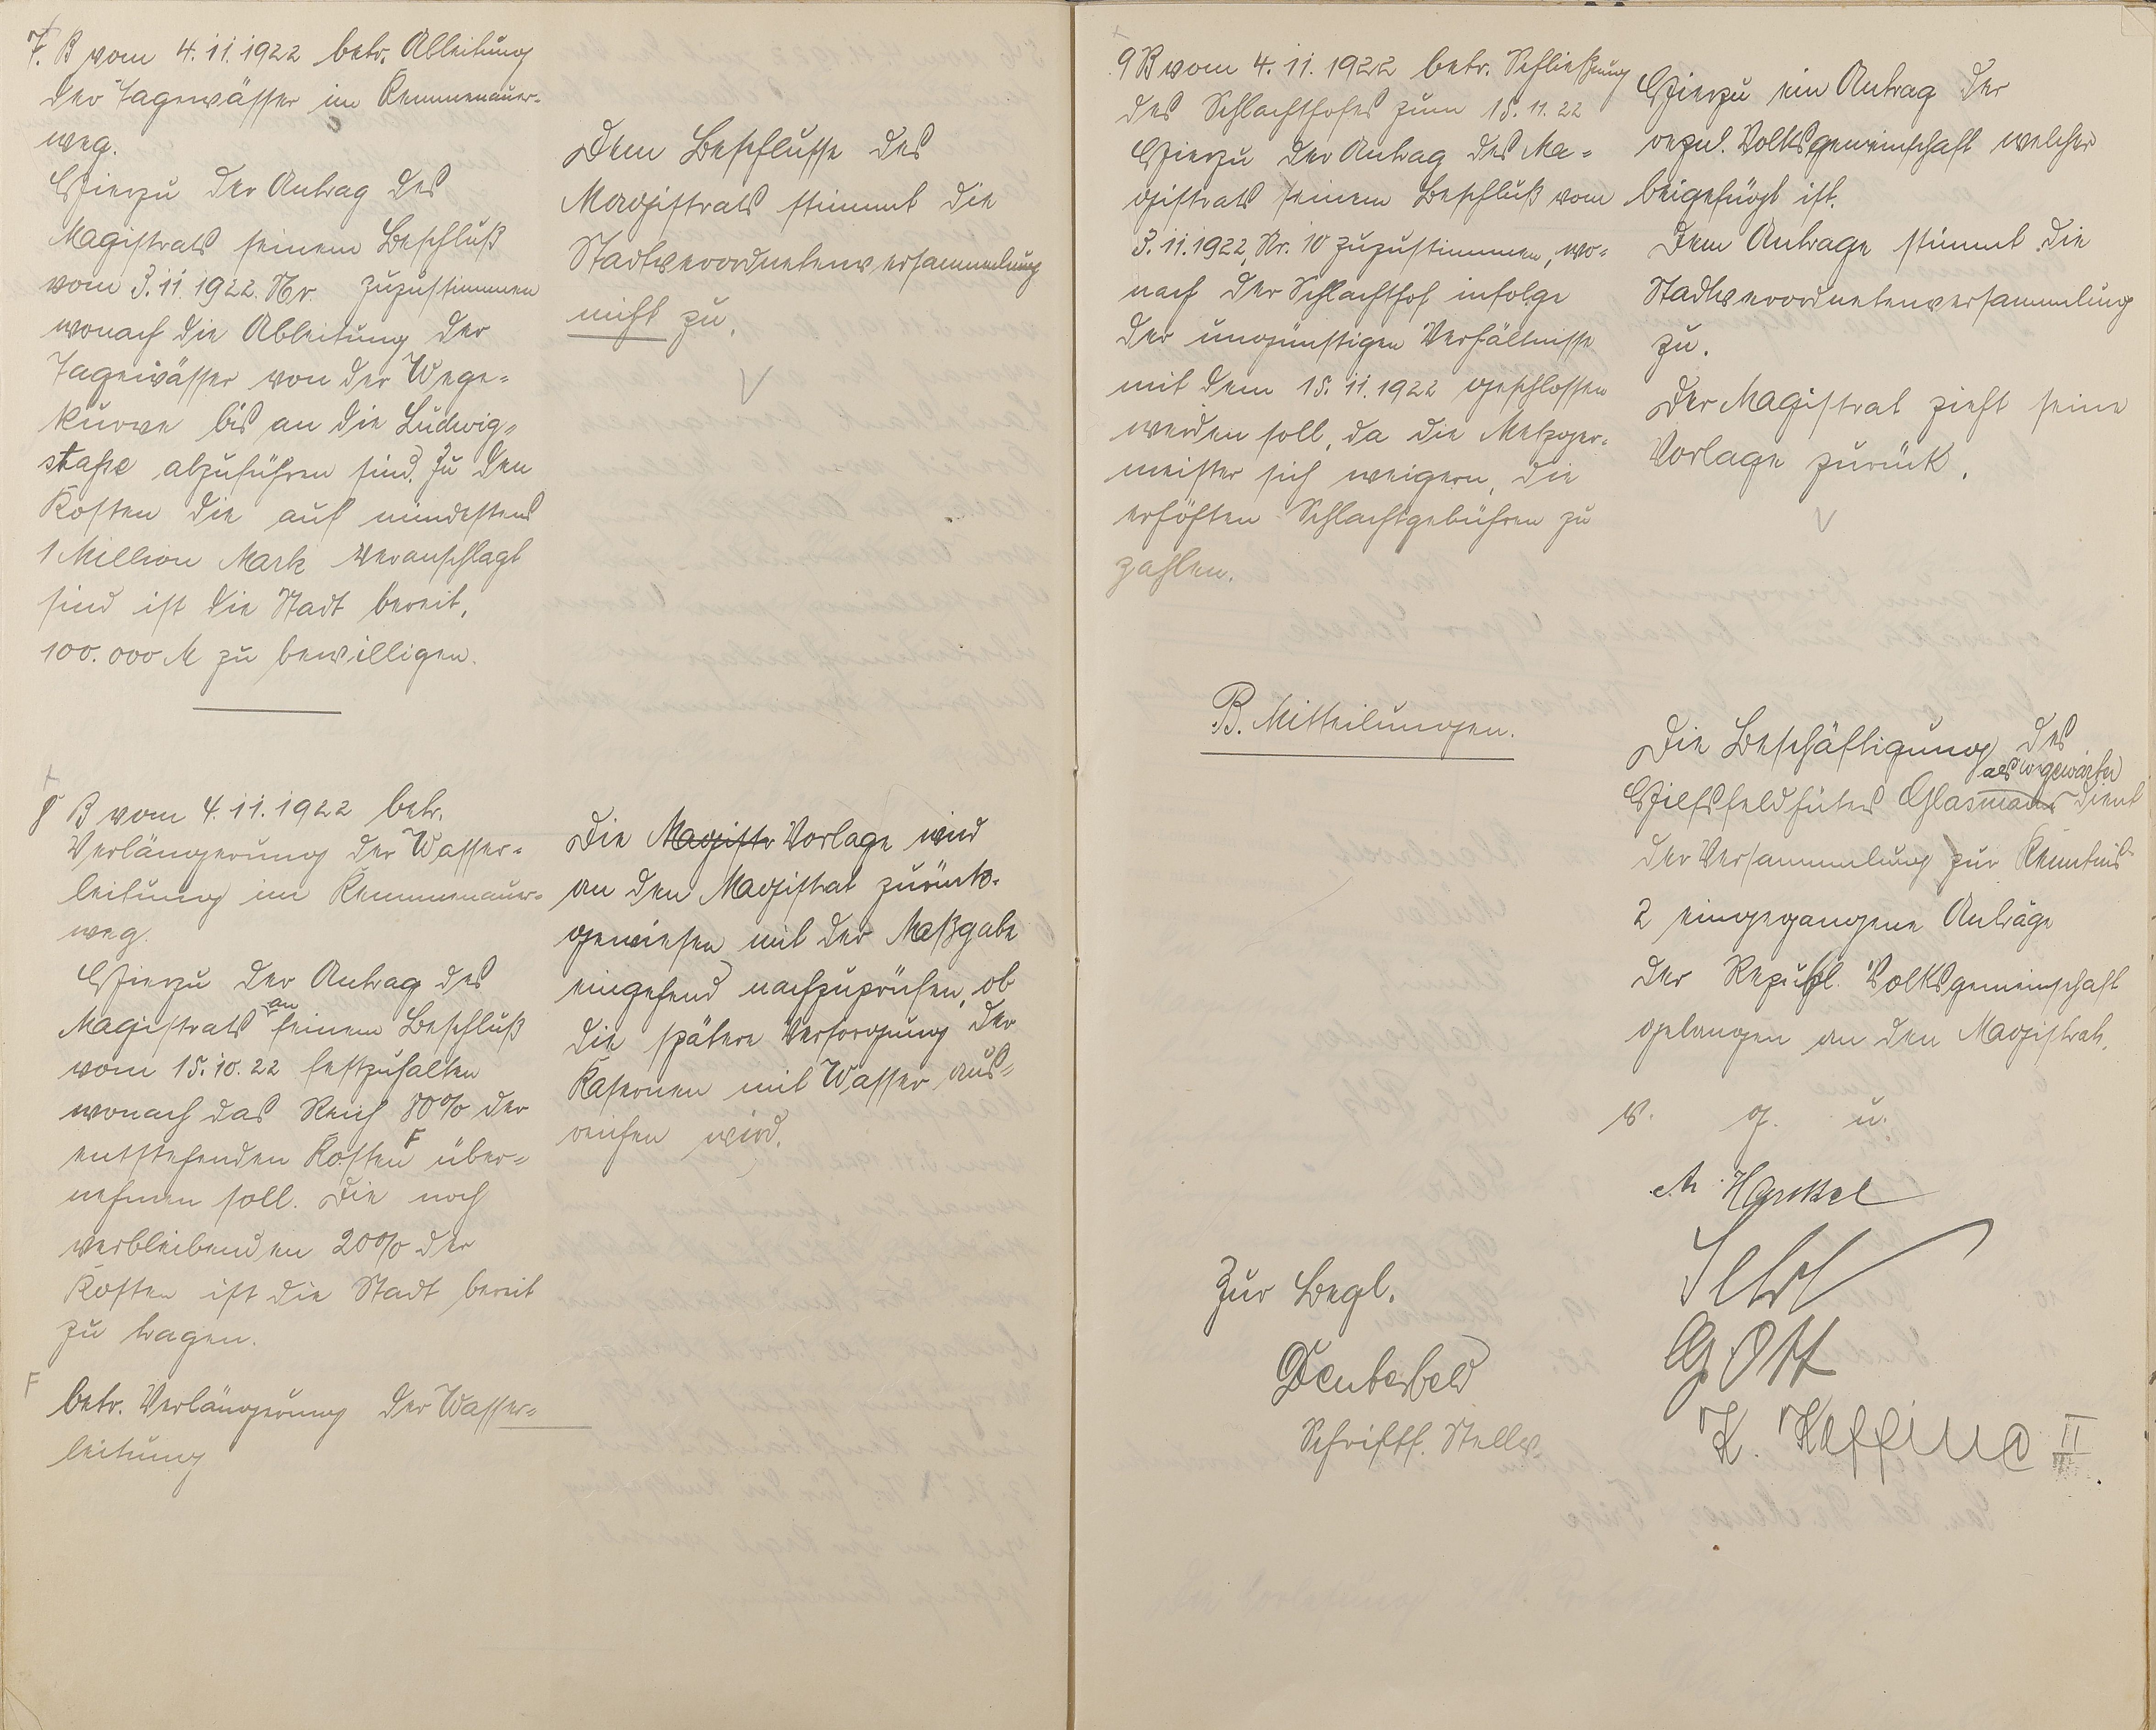 7. B vom 4.11.1922 betr. Ableitung
der Tagewässer im Kemmenauer-
weg.
Hierzu der Antrag des
Magistrats seinem Beschluß
vom 3.11.1922. Nr. zuzustimmen
wonach die Ableitung der
Tagewässer von der Wege-
kurve bis an die Ludwig-
staße abzuführen sind. Zu den
Kosten die auf mindestens
1 Million Mark veranschlagt
sind ist die Stadt bereit,
100.000 M zu bewilligen.
Dem Beschlusse des
Magistrats stimmt die
Stadtverordnetenversammlung
nicht zu.
8 B vom 4.11.1922 betr.
Verlängerung der Wasser-
leitung im Kemmenauer-
weg.
Hierzu der Antrag des
Magistrats an seinem Beschluß
vom 15.10.22 festzuhalten
wonach das Reich 80% der
entstehenden Kosten F über-
nehmen soll. Die noch
verbleibenden 20% der
Kosten ist die Stadt bereit
zu tragen.
F betr. Verlängerung der Wasser-
leitung
Die Magistr Vorlage wird
an den Magistrat zurück-
gewiesen mit der Maßgabe
eingehend nachzuprüfen, ob
die spätere Versorgung der
Kasernen mit Wasser aus-
reichen wird.
9 B vom 4.11.1922 betr. Schließung
des Schlachthofes zum 15.11.22
Hierzu der Antrag des Ma-
gistrats seinem Beschluß vom
3.11.1922, Nr. 10 zuzustimmen, wo-
nach der Schlachthof infolge
der ungünstigen Verhältnisse
mit dem 15.11.1922 geschlossen
werden soll, da die Metzger-
meister sich weigern, die
erhöhten Schlachtgebühren zu
zahlen.
Hierzu ein Antrag der
repul. Volksgemeinschaft welcher
beigefügt ist.
Dem Antrage stimmt die
Stadtverordnetenversammlung
zu.
Der Magistrat zieht seine
Vorlage zurück.
B. Mitteilungen.
Die Beschäftigung des
als
Hilfsfeldhüters Glasmann dient
der Versammlung zur Kenntnis
2 eingegangene Anträge
der Republ. Volksgemeinschaft
gelangen an den Magistrat.
v. g. u.
G. Ott
K. Kaffine II
Zur Begl.
Schriftf. Stellv.